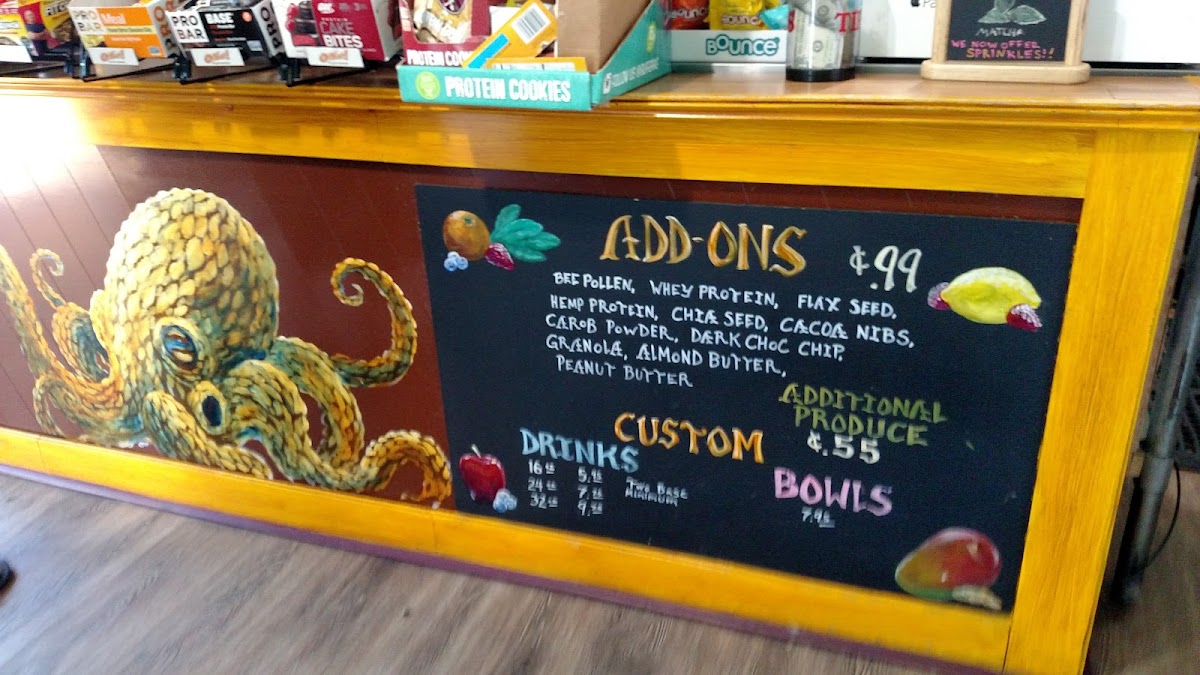 Meal
PRO BAR
PRO BAR
BASE
PROTEIN
CAKE
BITES
PROTEIN COOKIES
BOUNCE
MATCHA
WE NOW OFFER
SPRINKLES!!
ADD-ONS ¢.99
BEE POLLEN, WHEY PROTEIN, FLAX SEED,
HEMP PROTEIN, CHIA SEED, CACOA NIBS,
CAROB POWDER, DARK CHOC CHIP,
GRANOLA, ALMOND BUTTER,
PEANUT BUTTER
ADDITIONAL
PRODUCE
¢.55
CUSTOM
DRINKS
16
24
32
TWO BASE
MINIMUM
BOWLS